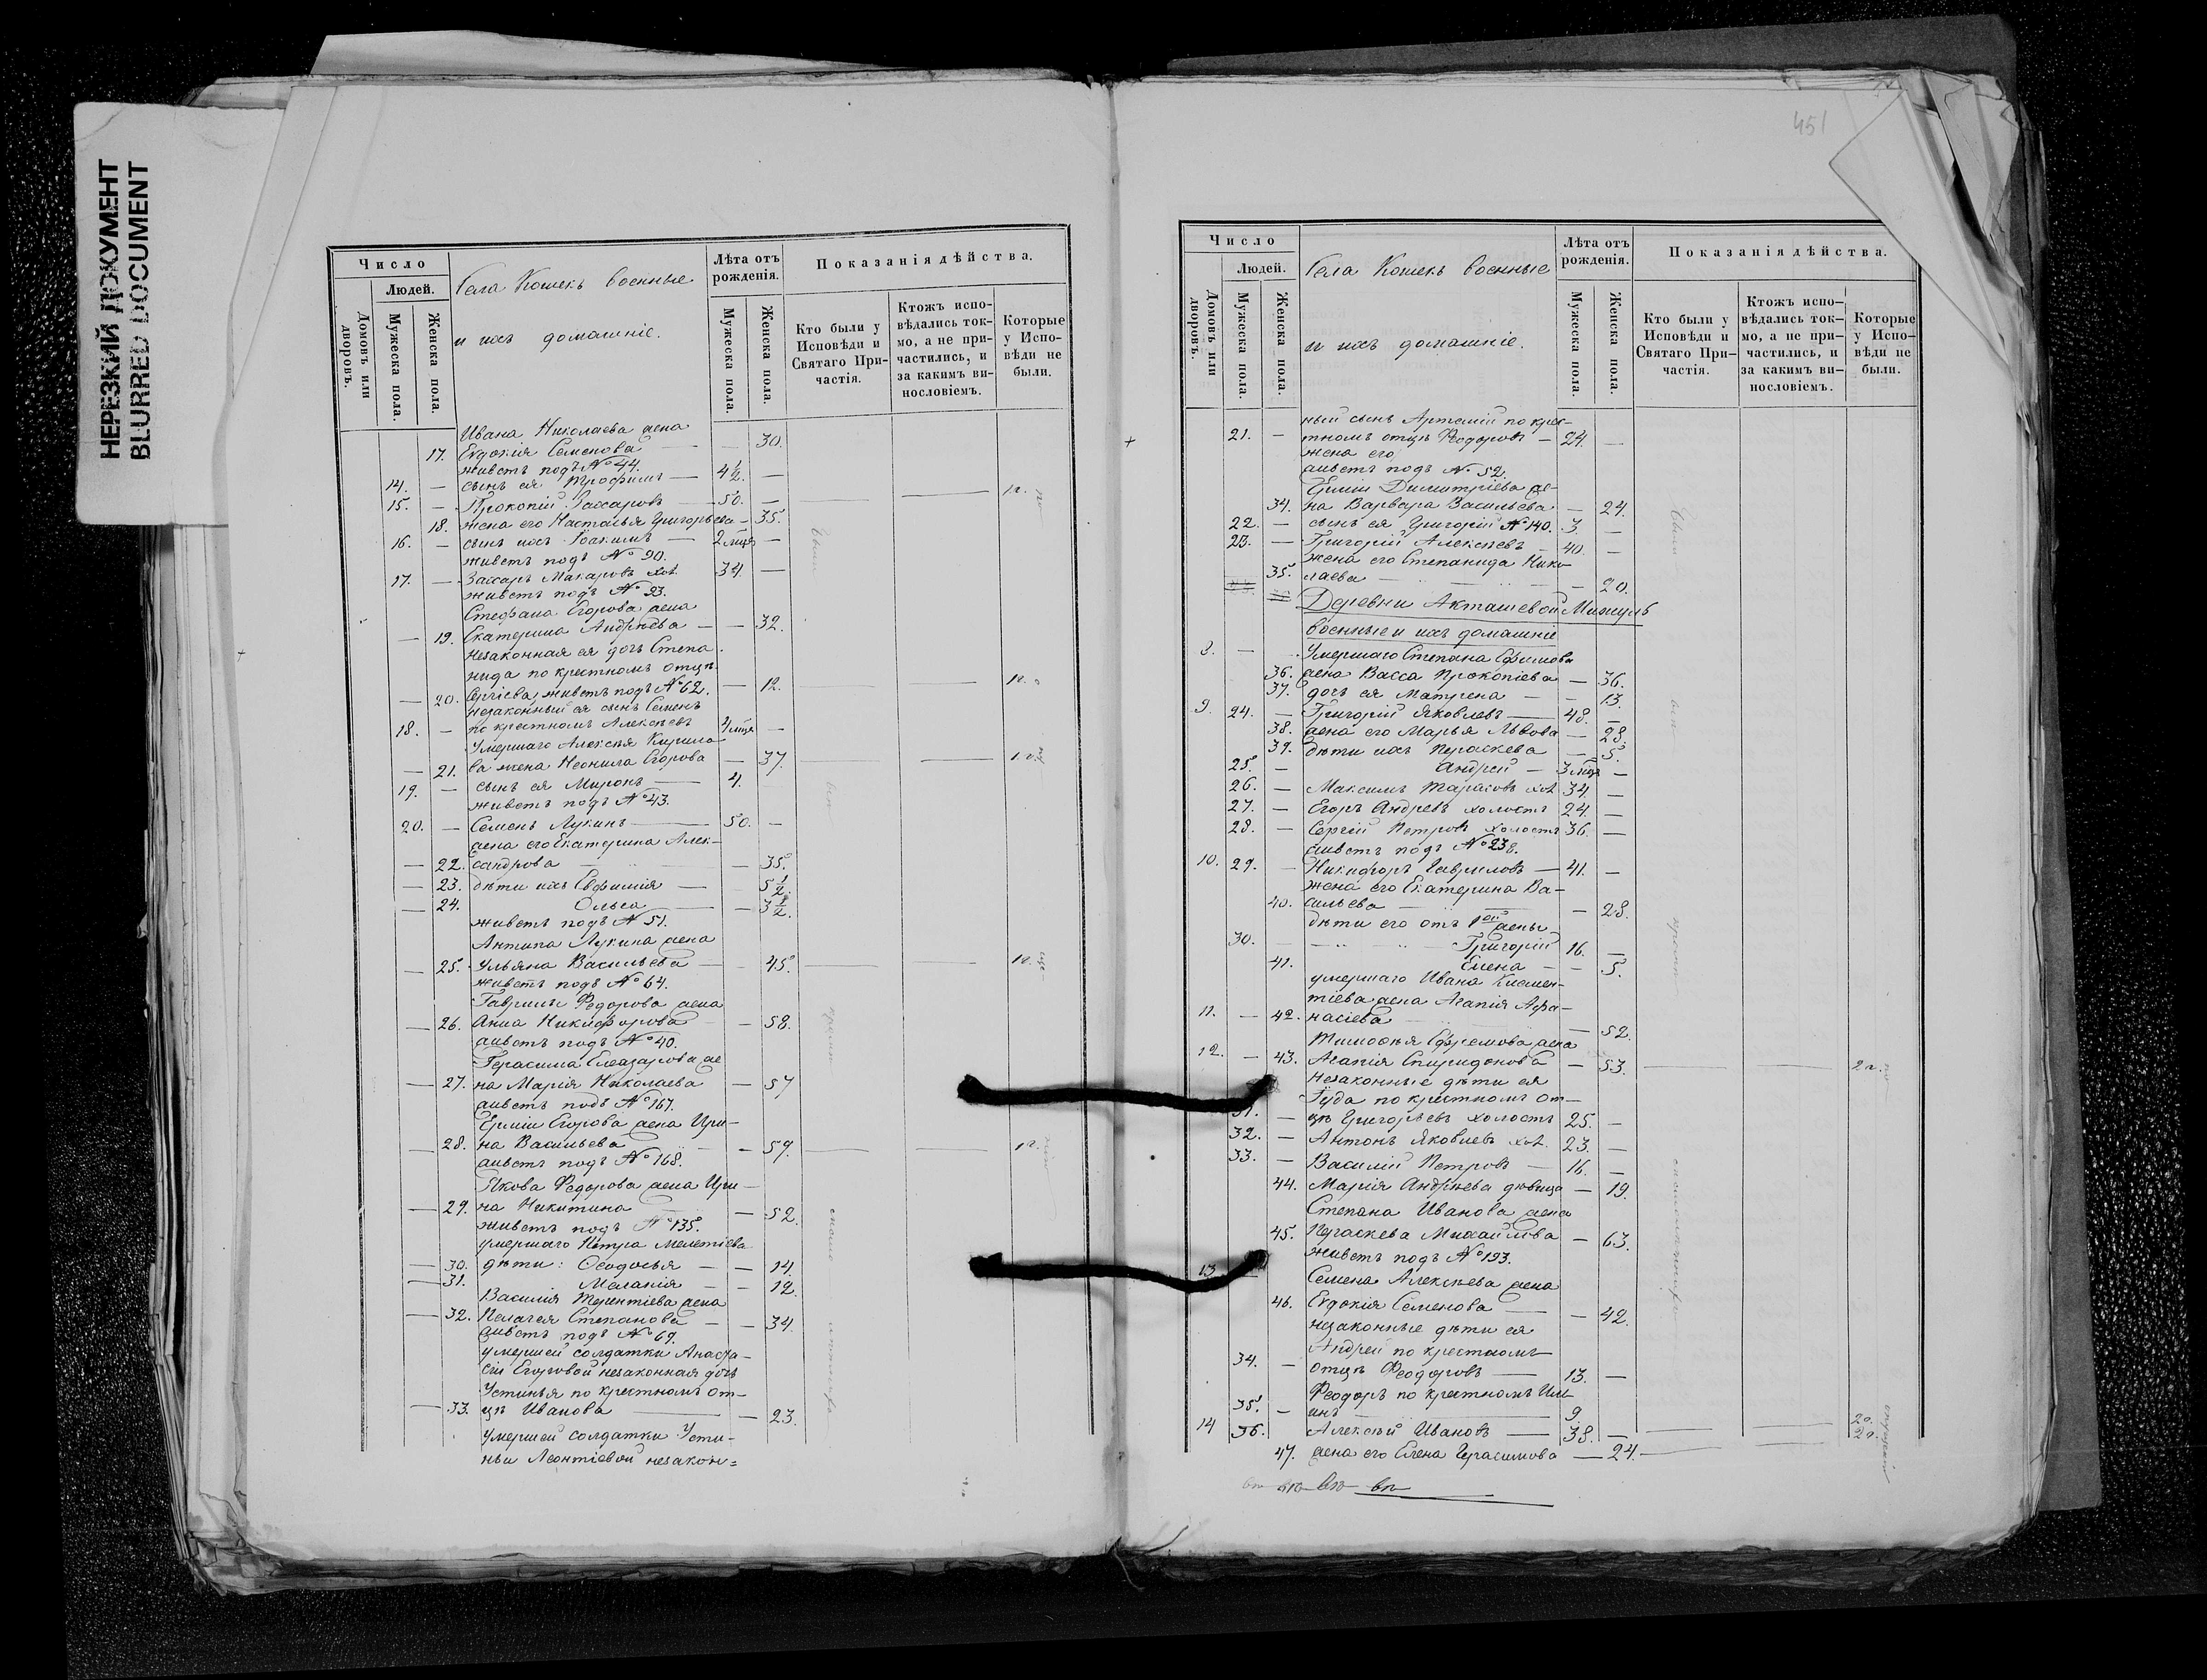 НЕРЕЗКИЙ ДОКУМЕНТ
BLURRED DOCUMENT
Число
Людей.
Домовъ или дворовъ.
Мужеска пола.
Женска пола.
Села Кошекъ военные
и ихъ домашніе.
Лѣта отъ рожденія.
Мужеска пола.
Женска пола.
Показанія дѣйства.
Кто были у Исповѣди и Святаго Причастія.
Ктожъ исповѣдались токмо, а не причастились, и за какимъ винословіемъ.
Которые у Исповѣди не были.
Ивана Николаева жена
17. Евдокія Семенова — 30.
живетъ подъ № 44.
14. — сынъ ея Трофимъ — 4 1/2. —
15. — Прокопій Захаровъ — 50. —
18. жена его Настасья Григорьева — 35.
16. — сынъ ихъ Іоакимъ — 2 мця —
живетъ подъ № 90.
17. — Захаръ Макаровъ хол. 34. —
живетъ подъ № 93.
Стефана Егорова жена
— 19. Екатерина Андрѣева — — 32.
незаконная ея дочь Степа-
нида по крестномъ отцѣ
— 20. Сергіева, живетъ подъ № 62. — 12.
незаконный ея сынъ Семенъ
18. — по крестномъ Алексѣевъ 4 мця —
Умершаго Алексѣя Кирило-
— 21. ва жена Неонила Егорова — 37.
19. — сынъ ея Миронъ — 4.
живетъ подъ № 43.
20. — Семенъ Лукинъ — 50. —
жена его Екатерина Алек-
— 22. сандрова — 35.
— 23. дѣти ихъ Евфимія — 5 1/2.
— 24. Ольга — 3 1/2.
живетъ подъ № 51.
Антипа Лукина жена
— 25. Ульяна Васильева — 45.
живетъ подъ № 64.
Гаврилы Федорова жена
— 26. Анна Никифорова — 58.
живетъ подъ № 40.
Герасима Елеазарова же-
— 27. на Марія Николаева — 57
живетъ подъ № 167.
Ермія Егорова жена Ири-
— 28. на Васильева — 59.
живетъ подъ № 168.
Якова Федорова жена Ири-
— 29. на Никитина — 52.
живетъ подъ № 135.
умершаго Петра Мелетіева
— 30. дѣти: Ѳеодосья — — 14.
— 31. Маланія — 12.
Василія Терентіева жена
— 32. Пелагея Степанова — — 34.
живетъ подъ № 69.
умершей солдатки Анаста-
сіи Егоровой незаконная дочь
Устинья по крестномъ от-
— 33. цѣ Иванова — 23.
умершей солдатки Усти-
ньи Леонтіевой незакон=
451
Число
Людей.
Домовъ или дворовъ.
Мужеска пола.
Женска пола.
Села Кошекъ военные
и ихъ домашніе.
Лѣта отъ рожденія.
Мужеска пола.
Женска пола.
Показанія дѣйства.
Кто были у Исповѣди и Святаго Причастія.
Ктожъ исповѣдались токмо, а не причастились, и за какимъ винословіемъ.
Которые у Исповѣди не были.
ный сынъ Артемій по крес-
21. — тномъ отцѣ Ѳедоровъ — 24. —
жена его
живетъ подъ № 52.
Ермія Димитріева же-
34. на Варвара Васильева — 24.
22. — сынъ ея Григорій № 140. 3. —
23. — Григорій Алексѣевъ — 40. —
жена его Степанида Нико-
35. лаева — 20.
Деревни Акташевой
военные и ихъ домашніе
8. — Умершаго Степана Ефимова
36. жена Васса Прокопіева — 36.
37. дочь ея Матрена — 13.
9. 24. — Григорій Яковлевъ — 48. —
38. жена его Марья Львова — 28.
39. дѣти ихъ Параскева — 5.
25. — Андрей — 3 мця —
26. — Максимъ Тарасовъ хол. 34. —
27. — Егоръ Андреевъ холостъ 24. —
28. — Сергій Петровъ холостъ 36. —
живетъ подъ № 238.
10. 29. — Никифоръ Гавриловъ — 41. —
жена его Екатерина Ва-
40. сильева — 28.
дѣти его отъ 1ой жены
30. — Григорій 16. —
41. Елена — — 5.
умершаго Ивана Климен-
тіева жена Агапія Афа-
11. — 42. насіева — 52.
Тимофея Ефремова жена
12. — 43. Агапія Спиридонова — 53.
незаконные дѣти ея
Іуда по крестномъ от-
31. — цѣ Григорьевъ холостъ 25. —
32. — Антонъ Яковлевъ хол. 23. —
33. — Василій Петровъ — 16. —
44. Марія Андрѣева дѣвица — 19.
Степана Иванова жена
45. Параскева Михайлова — 63.
живетъ подъ № 193.
13 Семена Алексѣева жена
46. Евдокія Семенова — 42.
незаконные дѣти ея
Андрей по крестномъ
34. — отцѣ Ѳеодоровъ — 13. —
Ѳеодоръ по крестномъ Иль-
35. — инъ — 9.
14 36. Алексѣй Ивановъ — 38. —
47. жена его Елена Герасимова — 24.